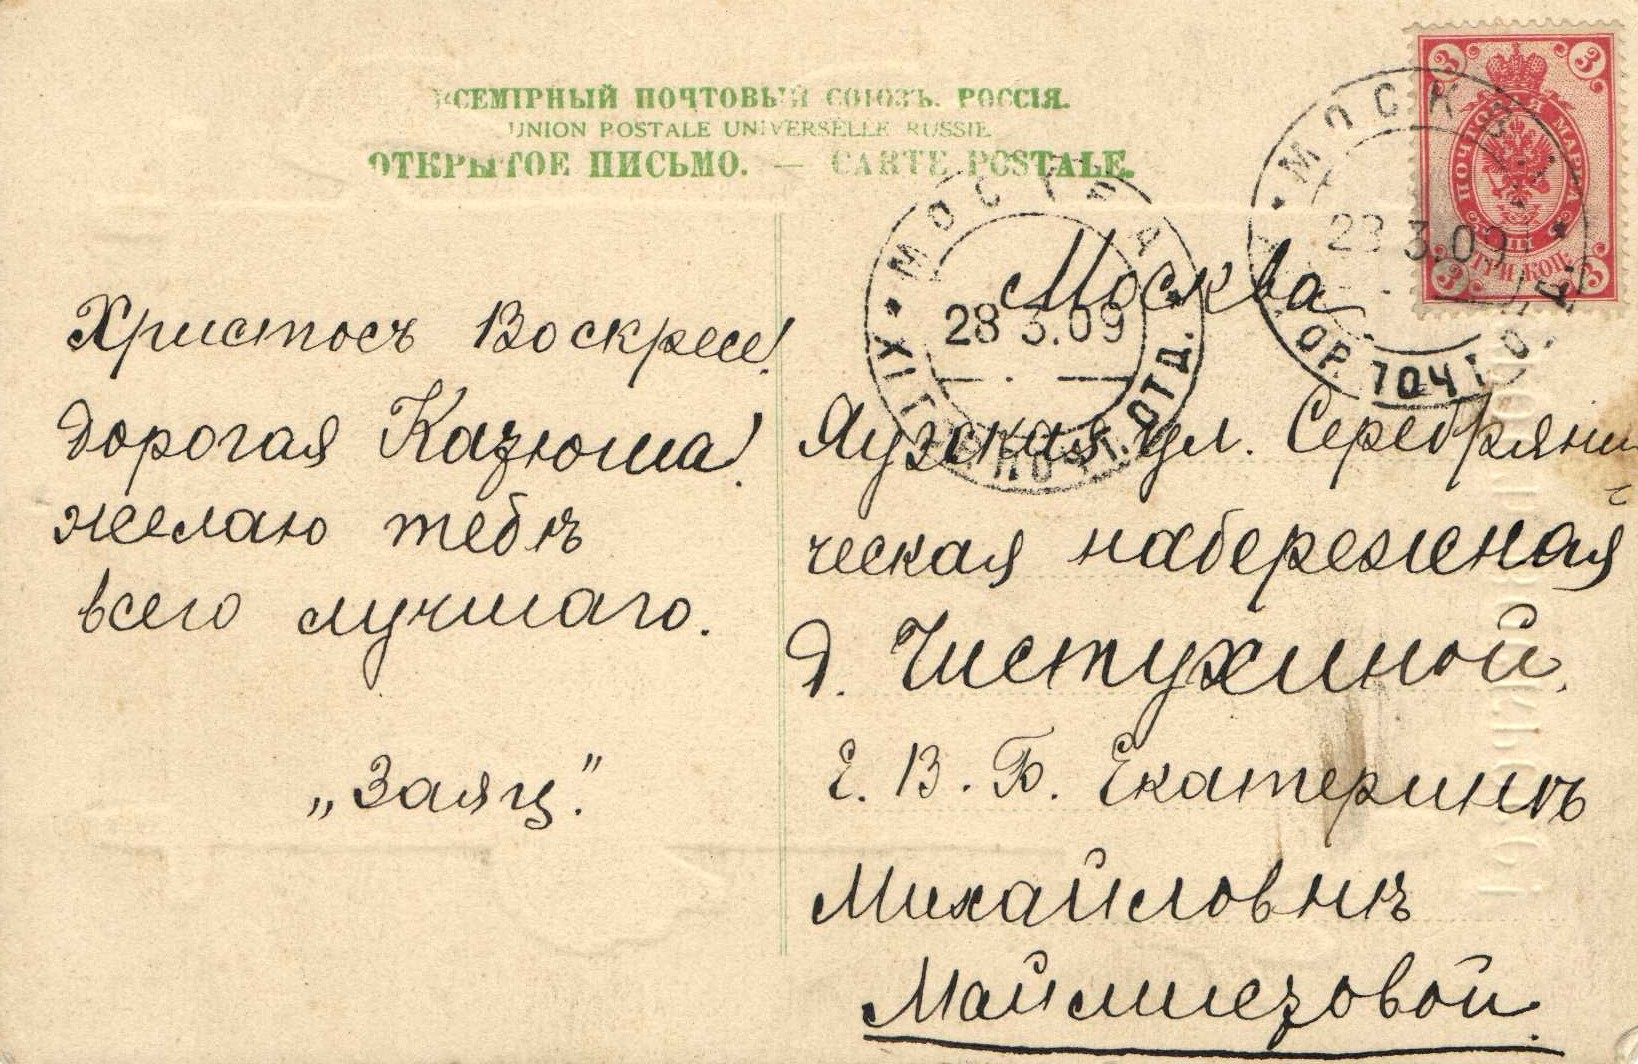 ВСЕМІРНЫЙ ПОЧТОВЫЙ СОЮЗЪ. РОССІЯ.
UNION POSTALE UNIVERSELLE RUSSIE
ОТКРЫТОЕ ПИСЬМО. — CARTE POSTALE.
3 3
ПОЧТОВАЯ МАРКА
ТРИ КОП.
3 3
МОСКВА
28.3.09
ГОР. ПОЧТ. ОТД.
МОСКВА
28 3.09
ПОЧТ. ОТД.
Христосъ Воскресе!
Дорогая Казюша!
желаю тебѣ
всего лучшаго.
„Заяц."
Москва
Яузская ул. Серебрянни
ческая набережная
д. Чистухиной.
Е. В. Б. Екатеринѣ
Михайловнѣ
Маймиезовой.